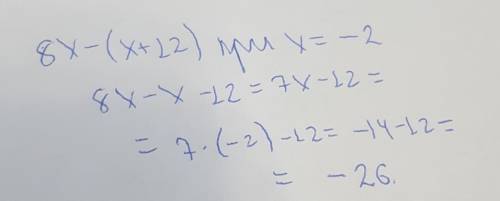 8x-(x+12) при x = -2
8x-x-12=7x-12=
= 7·(-2)-12= -14-12=
= -26.